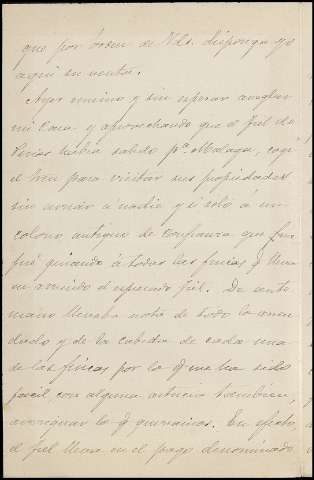 que por orden de Vds. disponga yo
aqui su venta.
Ayer mismo y sin esperar arreglar
mi casa y aprovechando que el Fiel de
habia salido pª Malaga, cogi
el tren para visitar sus propiedades
sin avisar á nadie y si solo á un
colono antiguo de confianza que fue
fué guiando á todas las fincas q lleva
en arriendo el Fiel. De ante
mano llevaba nota de todo lo arren
dado y de la cabida de cada una
de las fincas por lo q me ha sido
facil, con alguna astucia tambien,
averiguar lo q queriamos. En efecto,
el Fiel lleva en el pago denominado